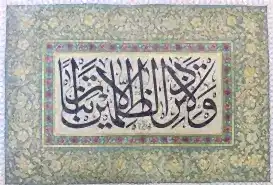 ولا تزد الظالمين إلا تبارا